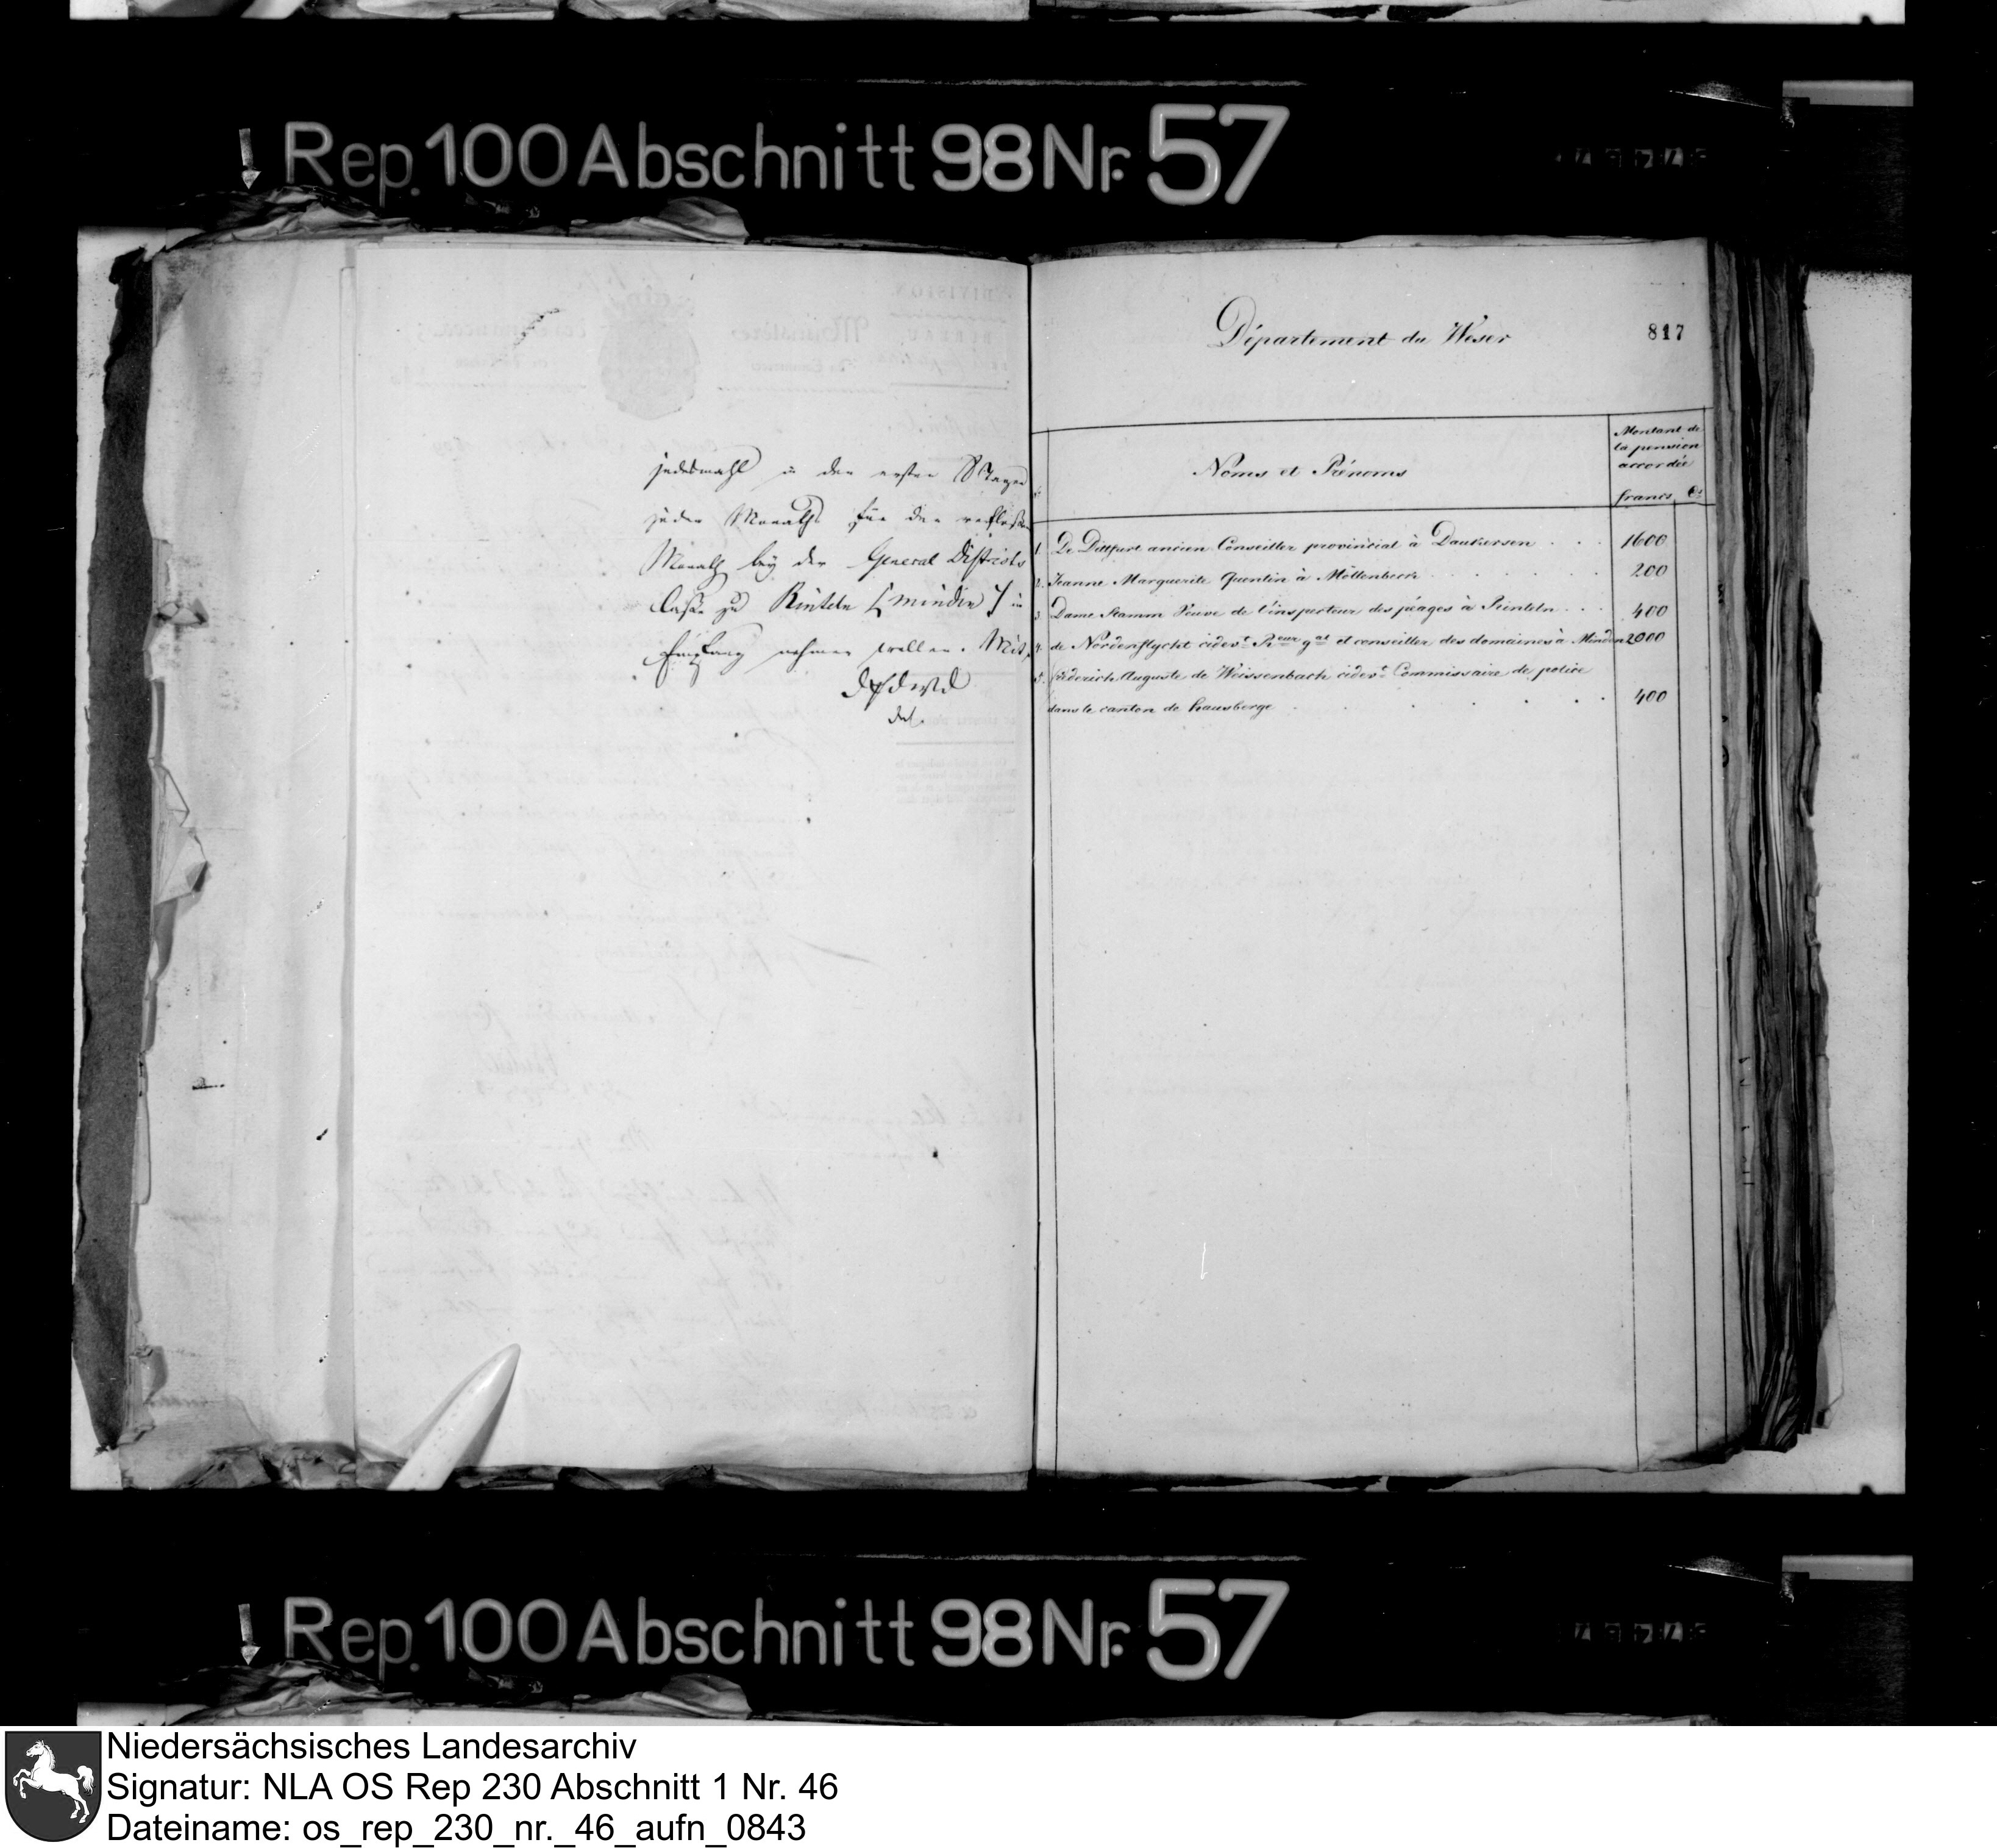 Rep. 100 Abschnitt 98 Nr. 57
jedesmahl in den ersten 8 Tagen
jeden Monaths für den verfloßn
Monath bey der General Districts
Casse zu Rinteln [Minden] in
Empfang nehmen wollen. Mit
Département du Weser
817
Noms et Prénoms
Montant de
la pension
accordée
francs Cs
1. De Dittfurt ancien Conseiller provincial à Dankersen . . . 1600
2. Jeanne Marguerite Quentin à Möllenbeck . . . . . 200
3. Dame Stamm Veuve de l'inspecteur des péages à Rinteln . . . 400
4. de Nordenflycht cidevt. Rceur gal et conseiller des domaines à Minden 2000
5. Fréderich Auguste de Weissenbach cidevt. Commissaire de police
dans le canton de hausberge . . . . . 400
Rep. 100 Abschnitt 98 Nr. 57
Niedersächsisches Landesarchiv
Signatur: NLA OS Rep 230 Abschnitt 1 Nr. 46
Dateiname: os_rep_230_nr._46_aufn_0843